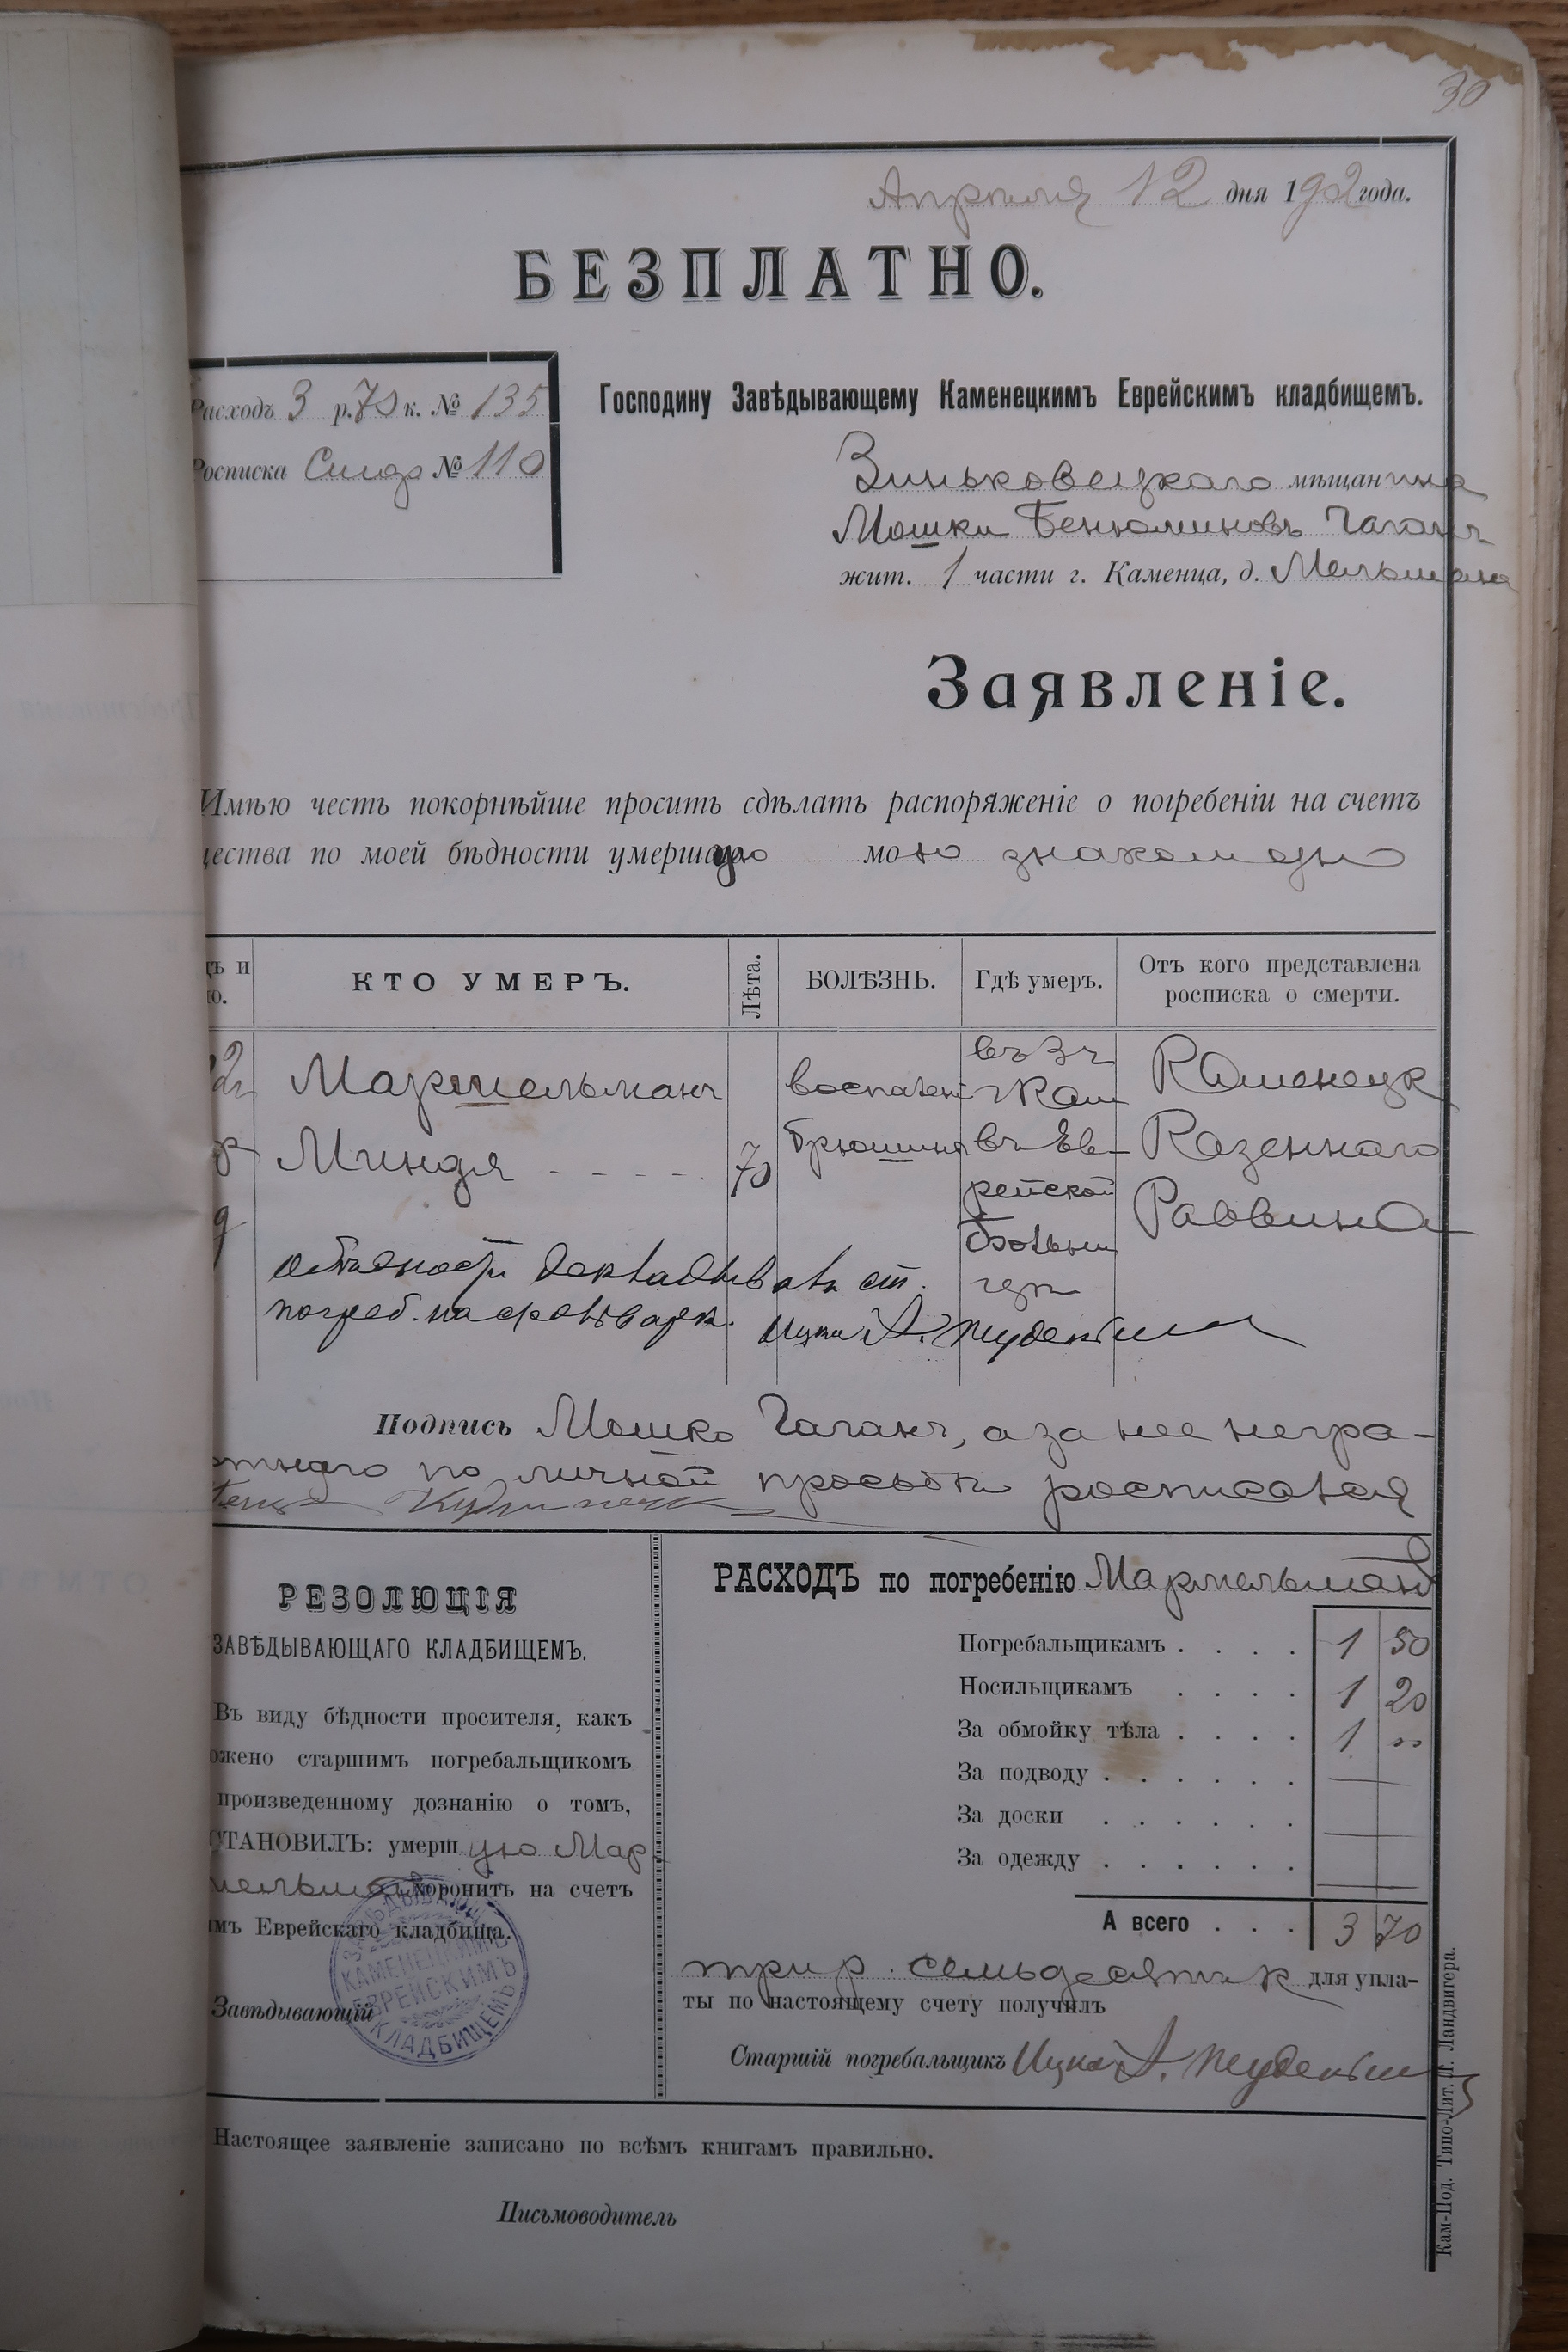 30
Апреля 12 дня 1902 года.
БЕЗПЛАТНО.
Расходъ 3 р. 70 к. № 135
Росписка № 110
Господину Завѣдывающему Каменецкимъ Еврейскимъ кладбищемъ.
Зиньковецкаго мѣщанина
Мошки Бенюминовъ Гаганъ
жит. 1 части г. Каменца, д. Мельмана
Заявленіе.
Имѣю честь покорнѣйше просить сдѣлать распоряженіе о погребеніи на счетъ
щества по моей бѣдности умершую мою знакомую
ъ и
о.
КТО УМЕРЪ.
Лѣта.
БОЛѢЗНЬ.
Гдѣ умеръ.
Отъ кого представлена
росписка о смерти.
Мармельманъ
Миндя - - - -
70
воспален
брюшины
въ 3 ч
г Кам
въ Ев-
рейской
больни
цѣ
Каменецк
Казеннаго
Раввина
погреб.
Подпись Мошко Гаганъ, а за нее негра-
отнаго по личной просьбѣ росписался
РЕЗОЛЮЦІЯ
ЗАВѢДЫВАЮЩАГО КЛАДБИЩЕМЪ.
Въ виду бѣдности просителя, какъ
ожено старшимъ погребальщикомъ
произведенному дознанію о томъ,
СТАНОВИЛЪ: умершую Мар
мельманъ хоронить на счетъ
имъ Еврейскаго кладбища.
Завѣдывающій
ЗАВѢДЫВАЮЩ КАМЕНЕЦКИМЪ ЕВРЕЙСКИМЪ КЛАДБИЩЕМЪ
РАСХОДЪ по погребенію Мармельманъ
Погребальщикамъ . . . . 1 50
Носильщикамъ . . . . 1 20
За обмойку тѣла . . . . 1 "
За подводу . . . . . . —
За доски . . . . . . —
За одежду . . . . . . —
А всего . . . 3 70
три р. семьдесятъ к для упла-
ты по настоящему счету получилъ
Старшій погребальщикъ Ицко А.
Настоящее заявленіе записано по всѣмъ книгамъ правильно.
Письмоводитель
Кам-Под. Типо-Лит. Л. Ландвигера.